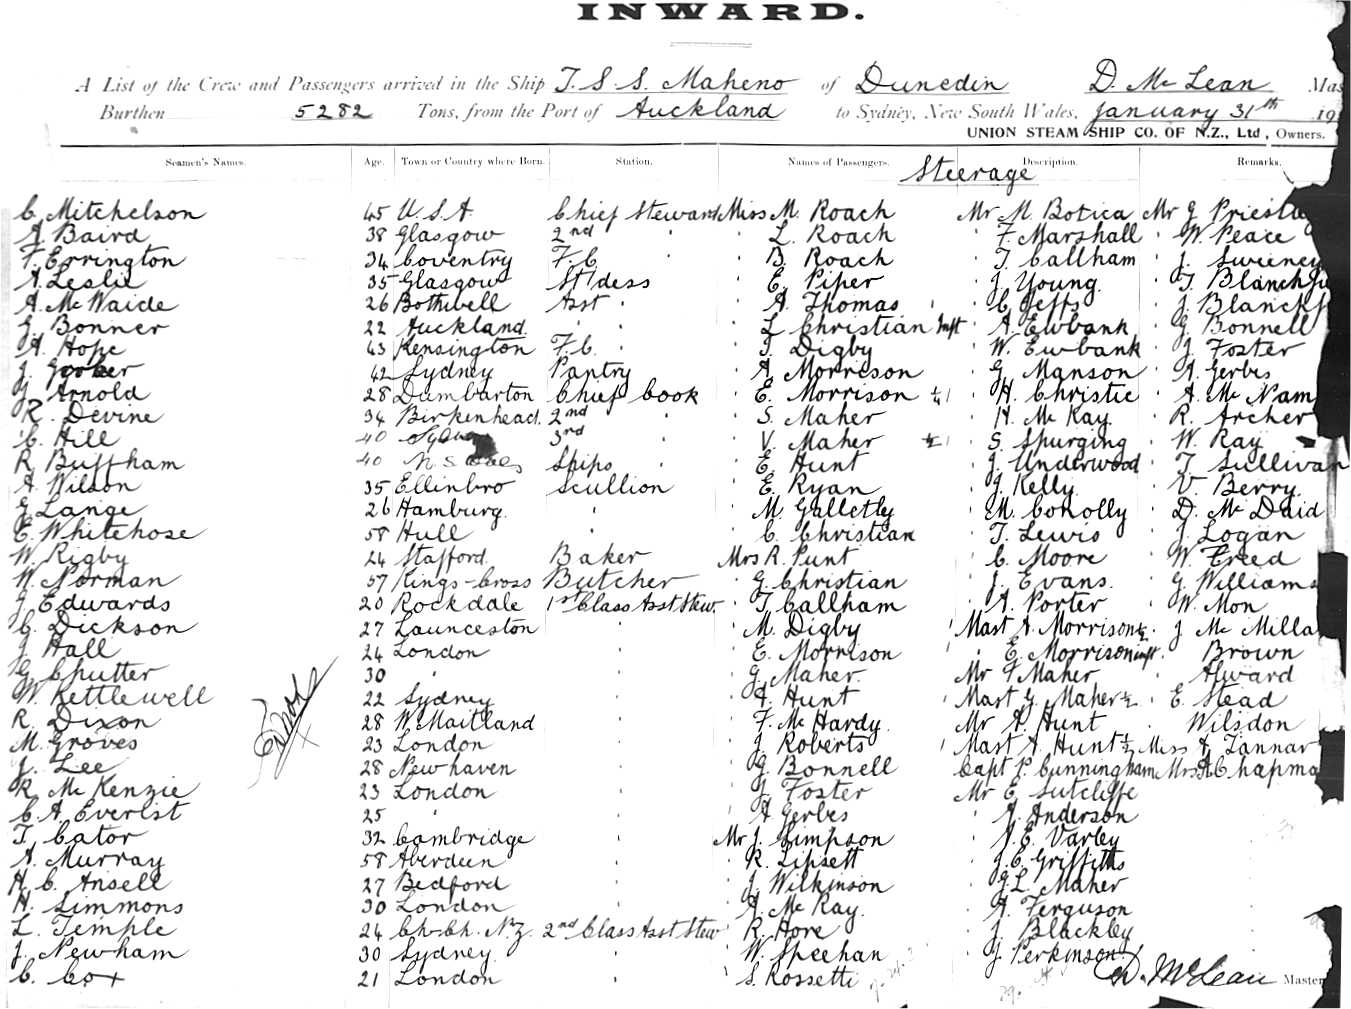 INWARD.
A List of the Crew and Passengers arrived in the Ship T.S.S. Maheno of Dunedin D. McLean Mas
Burthen 5282 Tons, from the Port of Auckland to Sydney, New South Wales, January 31th 19
UNION STEAM SHIP CO. OF N.Z., Ltd, Owners.
Seamen's Names. Age. Town or Country where Born. Station. Names of Passengers. Description. Remarks.
Steerage
C. Mitchelson 45 U.S.A. Chief Steward Miss M. Roach Mr M. Botica Mr G. Priestle
A. Baird 38 Glasgow 2nd " " L. Roach " F. Marshall " W. Peace
F. Errington 34 Coventry F.C. " " B. Roach " T. Callham " J. Sweeney
A. Leslie 35 Glasgow St'dess " E. Piper " J. Young
A. McWaide 26 Bothwell Asst " " A. Thomas " C. Jeffs
J. Bonner 22 Auckland " " " L. Christian Inft " A. Ewbank " G. Bonnell
A. Hope 43 Kensington F.C. " " T. Digby " W. Ewbank " J. Foster
J. 42 Sydney Pantry " A. Morrison " G. Manson " A. Gerbes
G. Arnold 28 Dumbarton Chief Cook " E. Morrison ¼ " H. Christie " A. McNam
R. Devine 34 Birkenhead. 2nd " " S. Maher " H. McKay " R. Archer
C. Hill 40 3rd " V. Maher " S. Spurging " W. Ray
R. Buffham 40 Ships " " E. Hunt " J. Underwood " T. Sullivan
A. Wilson 35 Ellinbro Scullion " E. Ryan " J. Kelly " V. Berry
E. Lange 26 Hamburg. " " M. Galletly " M. Conolly " D. McDaid
E. Whitehose 58 Hull " " C. Christian " T. Lewis " J. Logan
W. Rigby 24 Stafford. Baker Mrs R. Punt " C. Moore " W. Freed
W. Norman 57 Kings-Cross Butcher " G. Christian " J. Evans. " G. Williams
J. Edwards 20 Rockdale 1st Class Asst Stew. " T. Callham " A. Porter " W. Mon
C. Dickson 27 Launceston " " M. Digby Mast A. Morrison ½ " J. McMilla
J. Hall 24 London " " E. Morrison " E. Morrison inft " Brown
G. Chutter 30 " " " G. Maher. Mr F. Maher
W. Kettlewell 22 Sydney " " A. Hunt Mast G. Maher ½ " E. Stead
R. Dixon 28 W. Maitland " " F. McHardy Mr A. Hunt Wilsdon
M. Groves 23 London " " J. Roberts Mast A. Hunt ½ Miss F. Tannar
J. Lee 28 Newhaven " " G. Bonnell Capt P. Cunningham Mrs A. Chapma
R. McKenzie 23 London " " J. Foster Mr E. Sutcliffe
C.A. Everist 25 " " " A. Gerbes " A. Anderson
T. Cator 32 Cambridge " Mr J. Simpson " J.E. Varley
A. Murray 58 Aberdeen " " R. Lipsett " J.C. Griffiths
H.C. Ansell 27 Bedford " " J. Wilkinson " G.L. Maher
H. Simmons 30 London " " A. McKay. " A. Ferguson
L. Temple 24 Ch-Ch. N.Z. 2nd Class Asst Stew " R. Hore " J. Blackley
J. Newham 30 Sydney. " " W. Sheehan " J. Perkinson
C. Cox 21 London " " S. Rossetti D. McLean Master